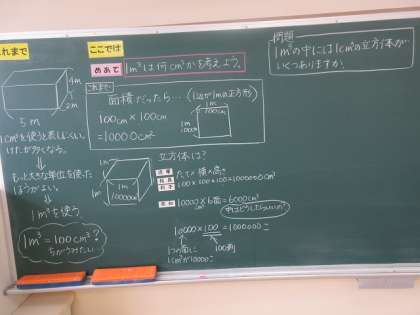 これまで
4m
2m
5m
1cm³を使うと表しにくい。
けたが多くなる。
↓
もっと大きな単位を使った
ほうがよい。
↓
1m³を使う
1m³=100cm³?
ちがうみたい
ここでは
めあて
1m³は何cm³かを考えよう。
これまで
面積だったら…(1辺が1mの正方形)
100cm×100cm
=10000cm²
1m
100cm
1m
100cm
立方体は?
1m
1m
1m
10000cm²
たて×横×高さ
100×100×100=1000000cm³
10000cm²×6面=60000cm²
中はどうしたらいいの
10000×100=1000000こ
↑
1つの面に
1cm³が10000こ
100列
問題
1m³の中には1cm³の立方体が
いくつありますか。